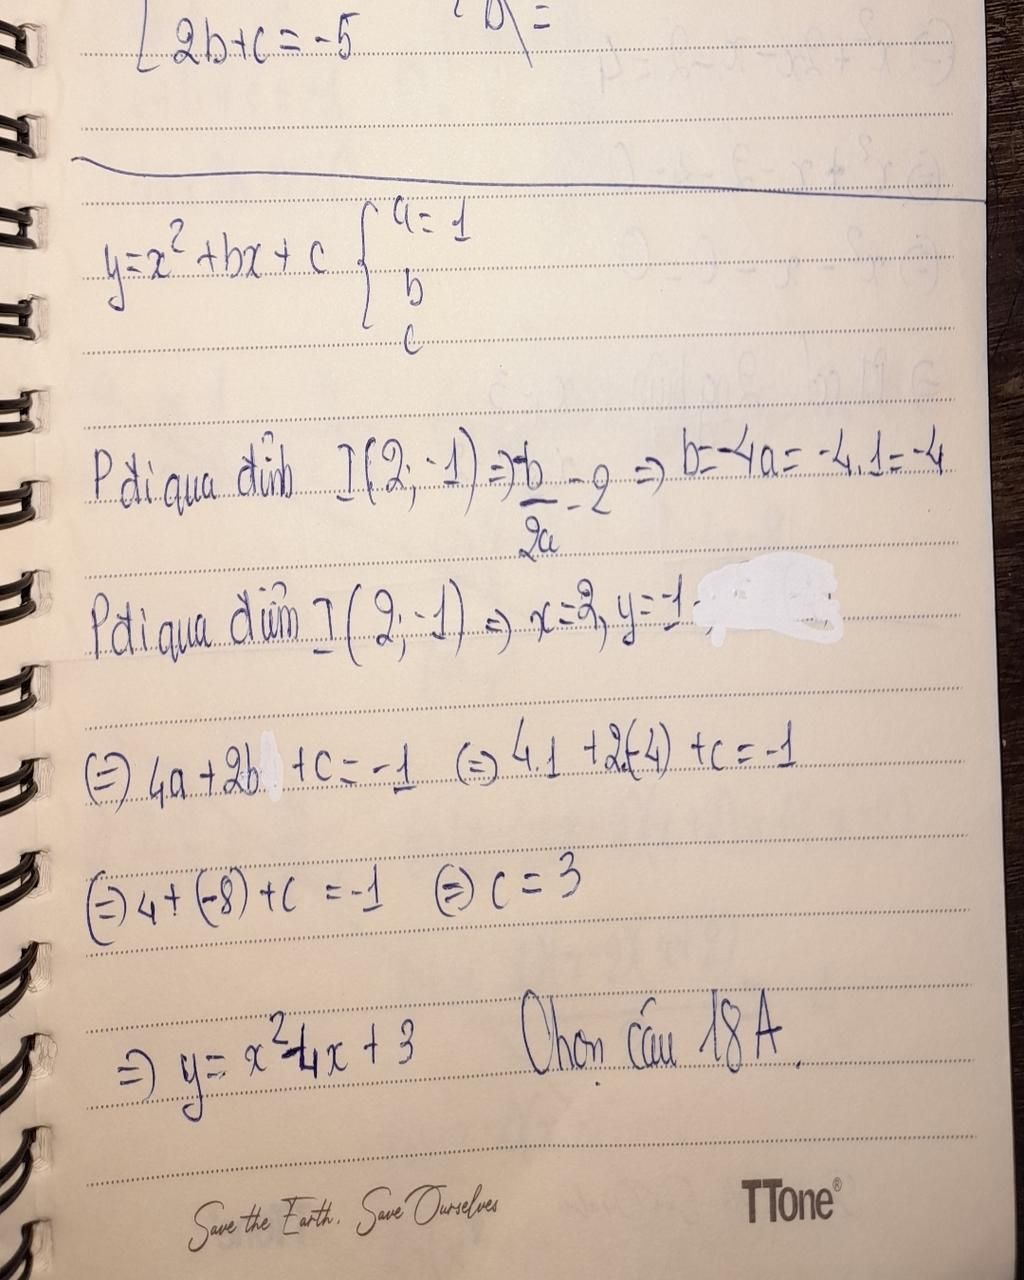 2b+c=-5
y=x²+bx+c { a=1
b
c
P đi qua đỉnh I(2;-1) => -b/2a = 2 => b=-4a=-4.1=-4
P đi qua điểm I(2;-1) => x=2, y=-1
(=) 4a+2b+c=-1 (=) 4.1+2(-4)+c=-1
(=) 4+(-8)+c=-1 (=) c=3
=> y=x²-4x+3 Chọn câu 18A.
Save the Earth. Save Ourselves
TTone®